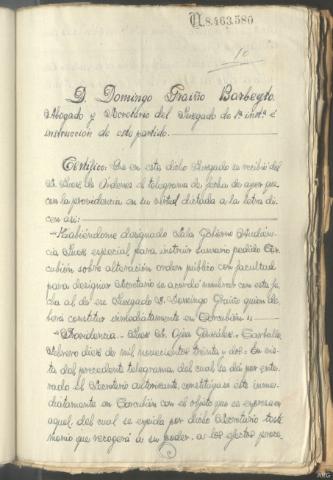 A.8.463.580
10
D. Domingo Graiño Barbeyto.
Abogado y Secretario del Juzgado de 1ª insta é
instrucción de este partido.
Certifico: Que en este dicho Juzgado se recibió del
Sr. Juez de Ordenes el telegrama de fecha de ayer que
con la providencia en su virtud dictada a la letra di
cen asi:
"Habiéndome designado Sala Gobierno Audien
cia Juez especial para instruir sumario pedido Cor
cubión sobre alteración orden público con facultad
para designar Secretario se acordó nombrar con esta fe
cha al de ese Juzgado D. Domingo Graiño quien de
berá constituir inmediatamente en Corcubión".
"Providencia.- Juez Sr. Ojea González.- Carballo
Febrero diez de mil novecientos treinta y dos.- En vis
ta del precedente telegrama del cual se dió por ente
rado el Secretario autorizante, constitúyase este inme
diatamente en Corcubión con el objeto que se expresa en
aquel, del cual se expida por dicho Secretario testi
monio que recogerá a su poder a los efectos proce
ARG